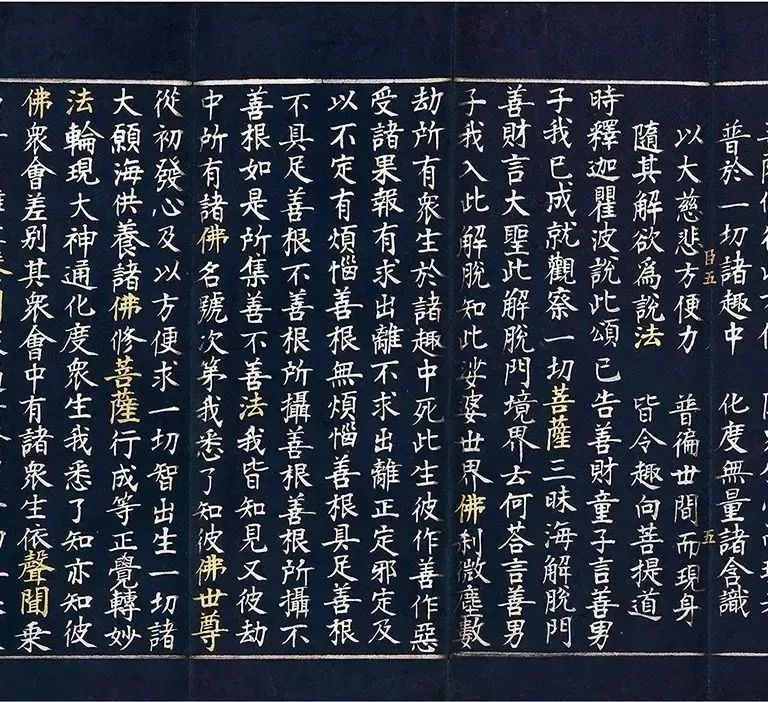 普於一切諸趣中 化度無量諸含識
日五 五
以大慈悲方便力 普徧世間而現身
隨其解欲為說法 皆令趣向菩提道
時釋迦瞿波說此頌已告善財童子言善男
子我已成就觀察一切菩薩三昧海解脫門
善財言大聖此解脫門境界云何荅言善男
子我入此解脫知此娑婆世界佛剎微塵數
劫所有眾生於諸趣中死此生彼作善作惡
受諸果報有求出離不求出離正定邪定及
以不定有煩惱善根無煩惱善根具足善根
不具足善根不善根所攝善根善根所攝不
善根如是所集善不善法我皆知見又彼劫
中所有諸佛名號次第我悉了知彼佛世尊
從初發心及以方便求一切智出生一切諸
大願海供養諸佛修菩薩行成等正覺轉妙
法輪現大神通化度眾生我悉了知亦知彼
佛眾會差別其眾會中有諸眾生依聲聞乘